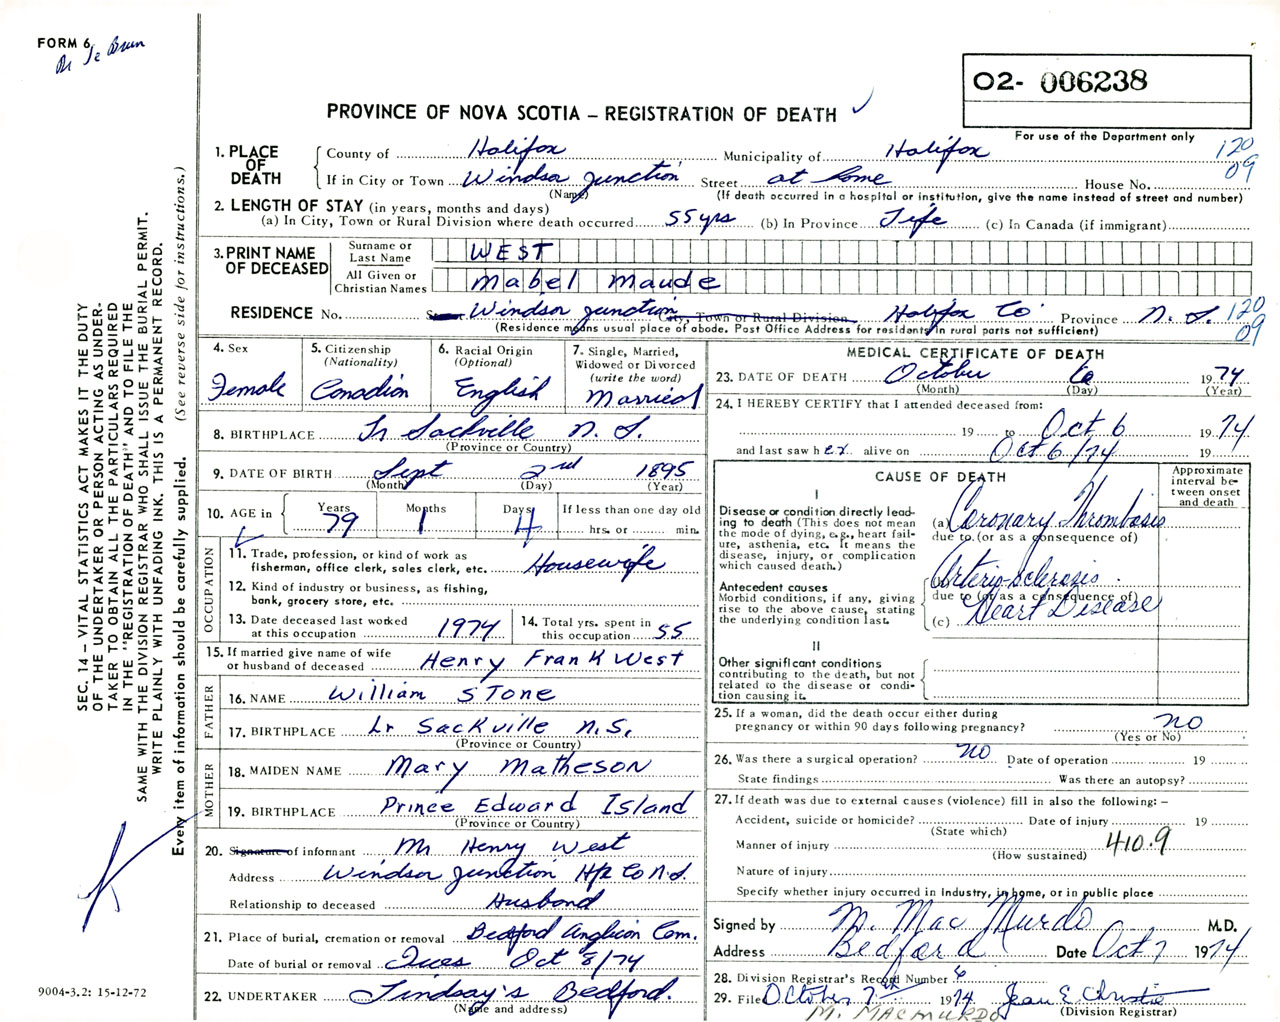 FORM 6
02- 006238
PROVINCE OF NOVA SCOTIA – REGISTRATION OF DEATH
For use of the Department only
1. PLACE OF DEATH
County of Halifax Municipality of Halifax 120
If in City or Town Windsor Junction Street at home House No. 09
(Name) (If death occurred in a hospital or institution, give the name instead of street and number)
2. LENGTH OF STAY (in years, months and days)
(a) In City, Town or Rural Division where death occurred 55 yrs (b) In Province Life (c) In Canada (if immigrant)
3. PRINT NAME OF DECEASED
Surname or Last Name WEST
All Given or Christian Names Mabel Maude
RESIDENCE No. Windsor Junction City, Town or Rural Division Halifax Co Province N.S. 120
(Residence means usual place of abode. Post Office Address for residents in rural parts not sufficient) 09
4. Sex
Female
5. Citizenship
(Nationality)
Canadian
6. Racial Origin
(Optional)
English
7. Single, Married,
Widowed or Divorced
(write the word)
Married
8. BIRTHPLACE Lr Sackville N.S.
(Province or Country)
9. DATE OF BIRTH Sept 2nd 1895
(Month) (Day) (Year)
10. AGE in Years Months Days If less than one day old
79 1 4 hrs. or min.
OCCUPATION
11. Trade, profession, or kind of work as
fisherman, office clerk, sales clerk, etc. Housewife
12. Kind of industry or business, as fishing,
bank, grocery store, etc.
13. Date deceased last worked
at this occupation 1974
14. Total yrs. spent in
this occupation 55
15. If married give name of wife
or husband of deceased Henry Frank West
FATHER
16. NAME William Stone
17. BIRTHPLACE Lr Sackville N.S.
(Province or Country)
MOTHER
18. MAIDEN NAME Mary Matheson
19. BIRTHPLACE Prince Edward Island
(Province or Country)
20. Signature of informant Mr Henry West
Address Windsor Junction Hfx Co N.S.
Relationship to deceased Husband
21. Place of burial, cremation or removal Bedford Anglican Cem.
Date of burial or removal Tues Oct 8/74
22. UNDERTAKER Lindsay's Bedford.
(Name and address)
MEDICAL CERTIFICATE OF DEATH
23. DATE OF DEATH October 6 1974
(Month) (Day) (Year)
24. I HEREBY CERTIFY that I attended deceased from:
19 to Oct 6 1974
and last saw her alive on Oct 6/74 19
CAUSE OF DEATH
Approximate interval between onset and death
I
Disease or condition directly leading to death (This does not mean the mode of dying, e.g., heart failure, asthenia, etc. It means the disease, injury, or complication which caused death.)
(a) Coronary Thrombosis
due to (or as a consequence of)
Antecedent causes
Morbid conditions, if any, giving rise to the above cause, stating the underlying condition last.
(b) Arterio-sclerosis
due to (or as a consequence of)
(c) Heart Disease
II
Other significant conditions
contributing to the death, but not related to the disease or condition causing it.
25. If a woman, did the death occur either during
pregnancy or within 90 days following pregnancy? no
(Yes or No)
26. Was there a surgical operation? no Date of operation 19
State findings Was there an autopsy?
27. If death was due to external causes (violence) fill in also the following: –
Accident, suicide or homicide? Date of injury 19
(State which)
Manner of injury 410.9
(How sustained)
Nature of injury
Specify whether injury occurred in industry, in home, or in public place
Signed by M. MacMurdo M.D.
Address Bedford Date Oct 7 1974
28. Division Registrar's Record Number 6
29. Filed October 7th 1974 Jean E. Christie
(Division Registrar)
M. MACMURDO
SEC. 14 – VITAL STATISTICS ACT MAKES IT THE DUTY
OF THE UNDERTAKER OR PERSON ACTING AS UNDER-
TAKER TO OBTAIN ALL THE PARTICULARS REQUIRED
IN THE "REGISTRATION OF DEATH" AND TO FILE THE
SAME WITH THE DIVISION REGISTRAR WHO SHALL ISSUE THE BURIAL PERMIT.
WRITE PLAINLY WITH UNFADING INK. THIS IS A PERMANENT RECORD.
Every item of information should be carefully supplied. (See reverse side for instructions.)
9004-3.2: 15-12-72